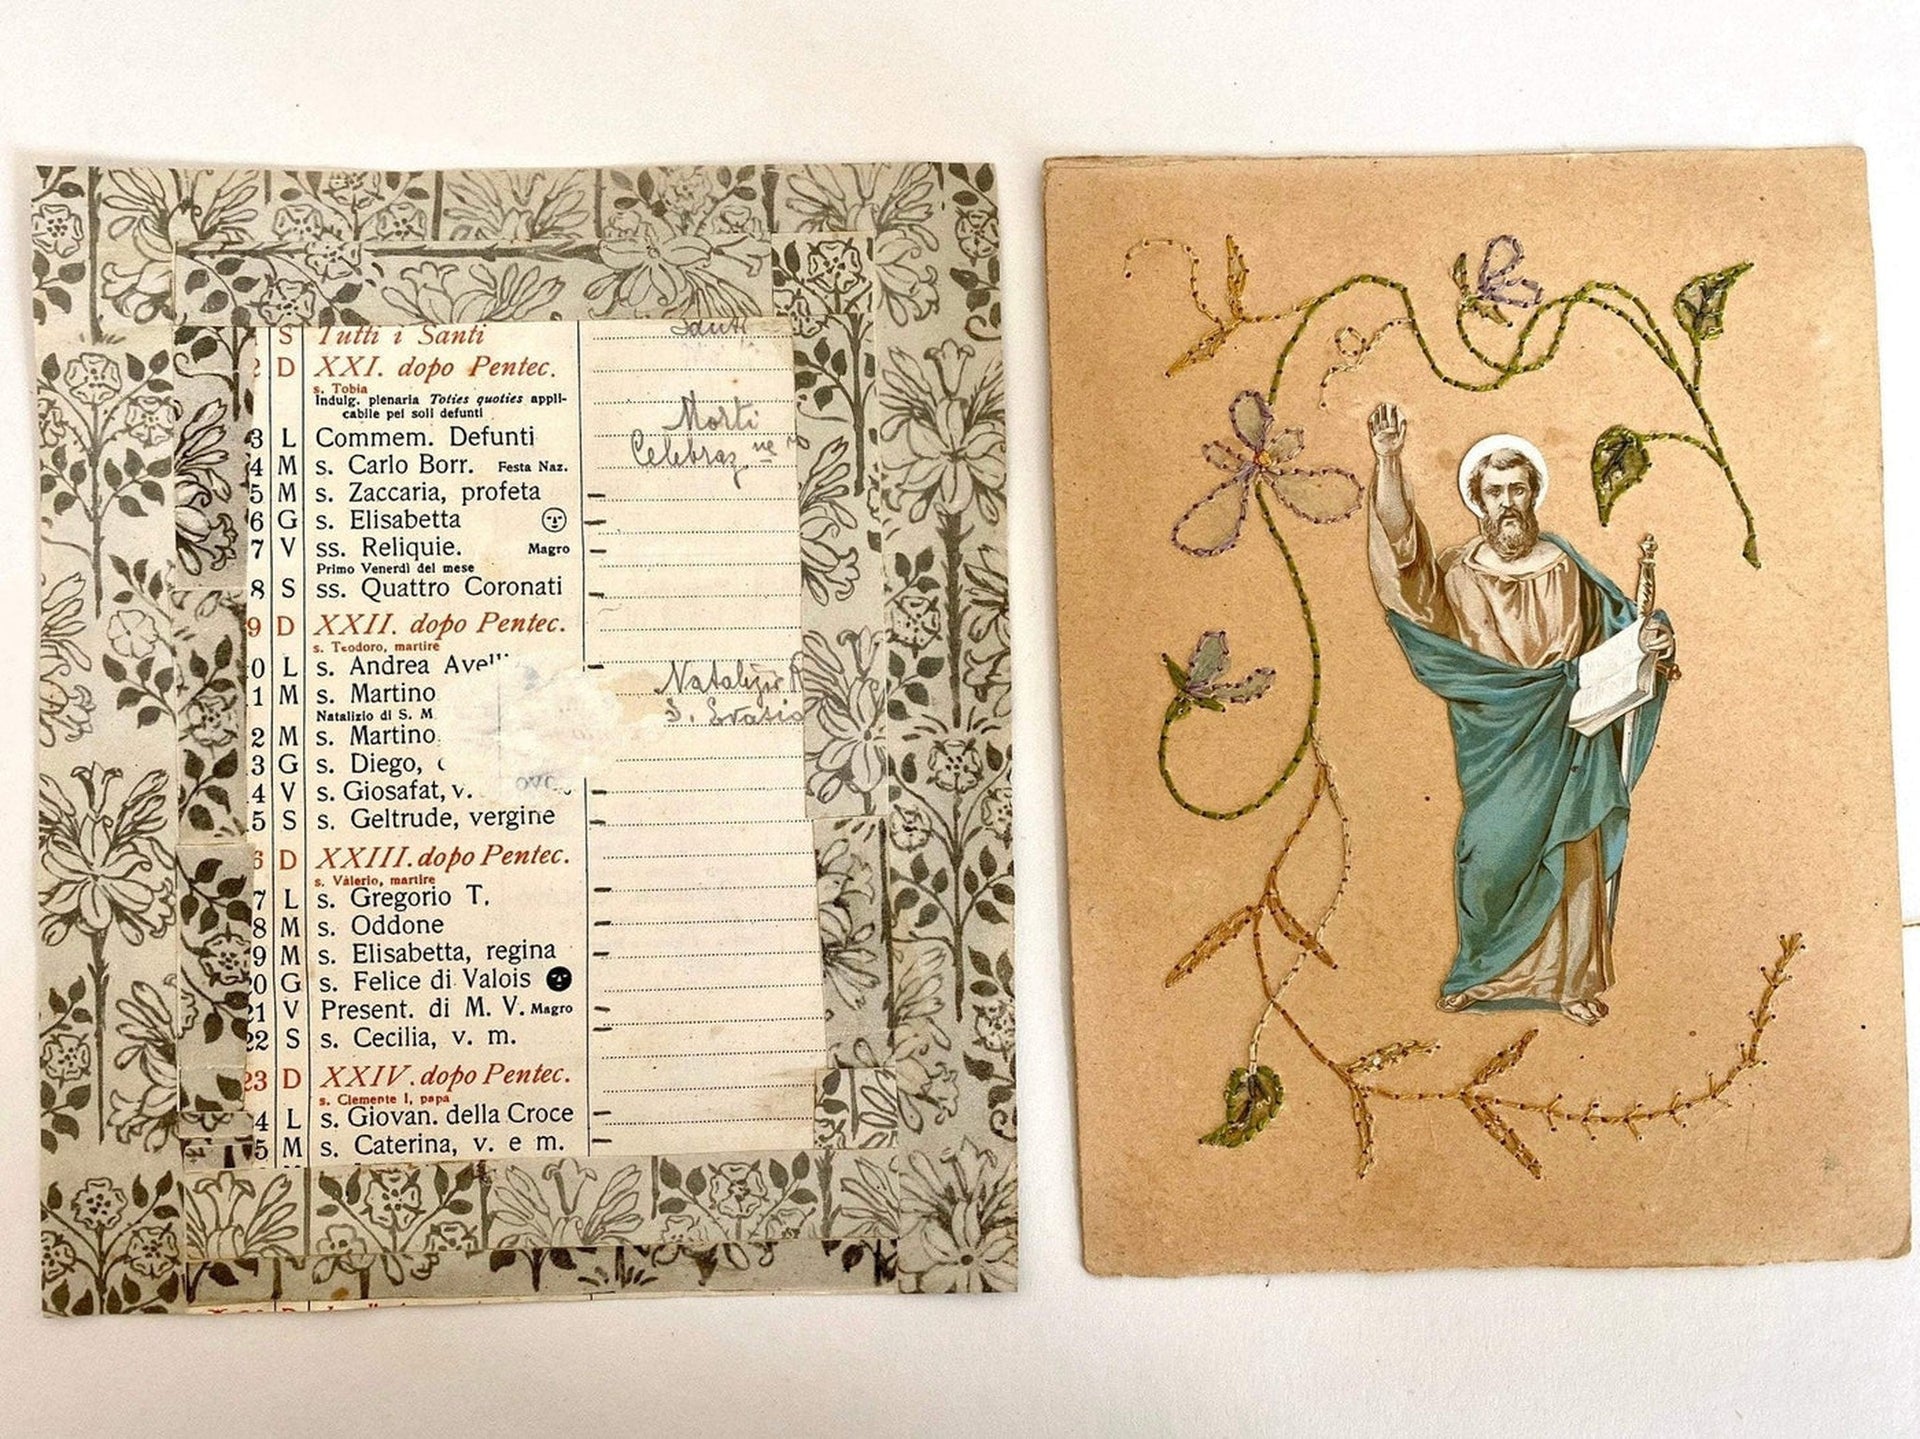 S Tutti i Santi
2 D XXI. dopo Pentec.
s. Tobia
Indulg. plenaria Toties quoties appli-
cabile pei soli defunti
3 L Commem. Defunti
Morti
4 M s. Carlo Borr. Festa Naz.
Celebraz ne
5 M s. Zaccaria, profeta
6 G s. Elisabetta
7 V ss. Reliquie. Magro
Primo Venerdì del mese
8 S ss. Quattro Coronati
9 D XXII. dopo Pentec.
s. Teodoro, martire
0 L s. Andrea Avelli
1 M s. Martino
Natalizio di S. M.
S. Grazio
2 M s. Martino
3 G s. Diego,
4 V s. Giosafat, v.
5 S s. Geltrude, vergine
6 D XXIII. dopo Pentec.
s. Valerio, martire
7 L s. Gregorio T.
8 M s. Oddone
9 M s. Elisabetta, regina
20 G s. Felice di Valois
21 V Present. di M. V. Magro
22 S s. Cecilia, v. m.
23 D XXIV. dopo Pentec.
s. Clemente I, papa
4 L s. Giovan. della Croce
5 M s. Caterina, v. e m.